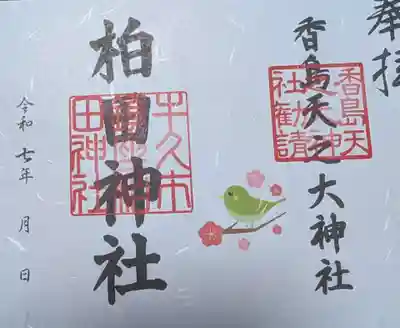 奉拝
香島天之大神社
香島天
之大神
社勧請
柏田神社
牛久市
田神社
令和七年 月 日